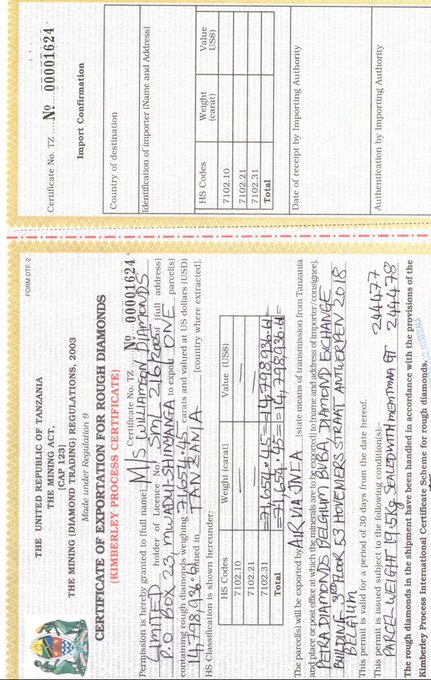 FORM DTF. 2
THE UNITED REPUBLIC OF TANZANIA
THE MINING ACT,
[CAP 123]
THE MINING (DIAMOND TRADING) REGULATIONS, 2003
Made under Regulation 9
CERTIFICATE OF EXPORTATION FOR ROUGH DIAMONDS
(KIMBERLEY PROCESS CERTIFICATE)
Certificate No. TZ ... Nº 00001624
Permission is hereby granted to [full name] M/S WILLIAMSON DIAMONDS
LIMITED holder of Licence No. SML 216/2005 of [full address]
P.O BOX 23, MWADUI SHINYANGA to export ONE parcel(s)
containing rough diamonds weighing 71,654.45 carats and valued at US dollars (USD)
mined in TANZANIA [country where extracted].
HS Classification is shown hereunder:
HS Codes Weight (carat) Value (US$)
7102.10
7102.21
7102.31 71,654.45
Total 71,654.45
The parcel(s) will be exported by AIR VIA JNIA [state means of transmission from Tanzania
and place or post office at which the minerals are to be exported] to [name and address of importer/consignee].
PETRA DIAMONDS BELGIUM BVBA, DIAMOND EXCHANGE
BUILDING 3RD FLOOR 53 HOVENIERS STRAAT ANTWERPEN 2018
BELGIUM
This permit is valid for a period of 30 days from the date hereof.
This permit is issued subject to the following conditions:— 244477
PARCEL WEIGHT 19.5KG SEALED WITH 244478
The rough diamonds in the shipment have been handled in accordance with the provisions of the
Kimberley Process International Certificate Scheme for rough diamonds.
Certificate No. TZ ... Nº 00001624
Import Confirmation
Country of destination
Identification of importer (Name and Address)
HS Codes Weight (carat) Value US$)
7102.10
7102.21
7102.31
Total
Date of receipt by Importing Authority
Authentication by Importing Authority